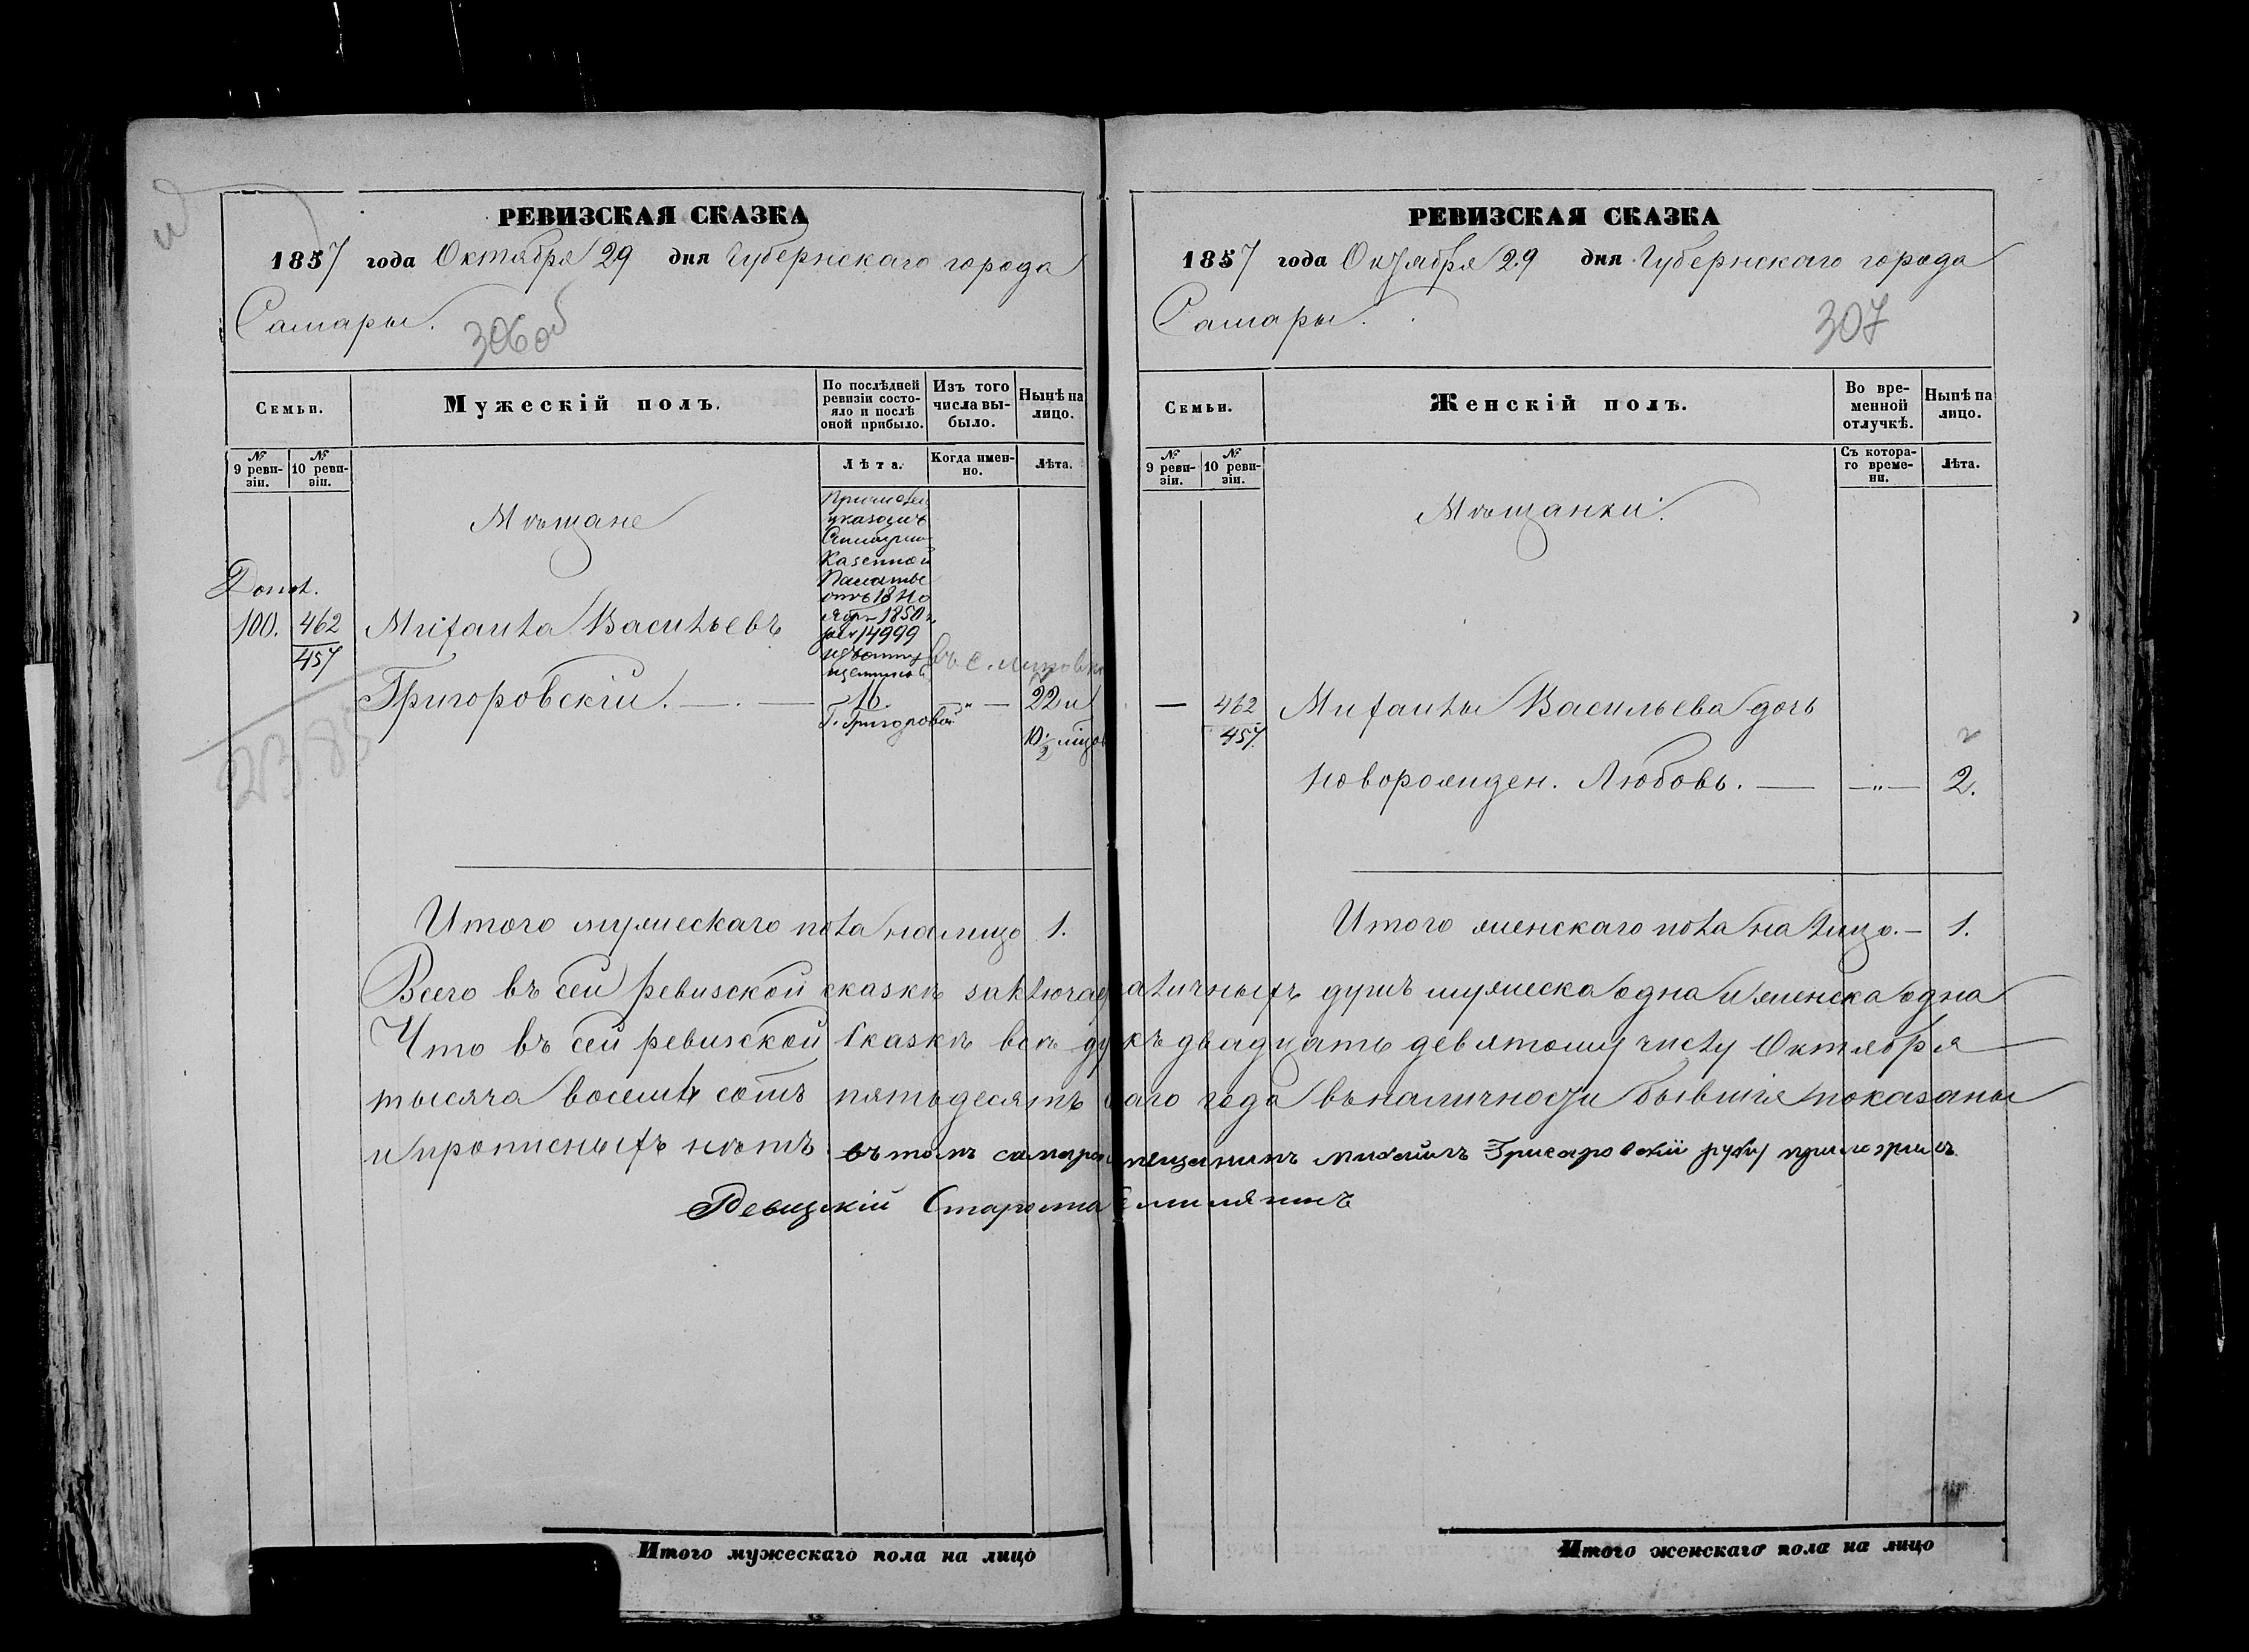 РЕВИЗСКАЯ СКАЗКА
1857 года Октября 29 дня Губернскаго города
Самары.
306об
Семьи.
Мужескій полъ.
По послѣдней ревизіи состо-
яло и послѣ оной прибыло.
Изъ того числа вы-
было.
Нынѣ на лицо.
№ 9 реви-
зіи.
№ 10 реви-
зіи.
Лѣта.
Когда имен-
но.
Лѣта.
Мѣщане
Причислен
указомъ
Казенной
Палаты
отъ 18 Но
ября 1850 г.
14999
Допол.
100. 462
457
Михаила Васильевъ
Григоровскій. — 16. " — 22 и
10/2 мѣс
Итого мужескаго пола на лицо 1.
РЕВИЗСКАЯ СКАЗКА
1857 года Октября 29 дня Губернскаго города
Самары.
307
Семьи.
Женскій полъ.
Во вре-
менной отлучкѣ.
Нынѣ на лицо.
№ 9 реви-
зіи.
№ 10 реви-
зіи.
Съ котора-
го време-
ни.
Лѣта.
Мѣщанки.
— 462
457.
Михаилы Васильева дочь
новорожден. Любовь. — " — 2.
Итого женскаго пола на лицо. — 1.
Всего въ сей ревизской сказкѣ заключае наличныхъ душъ мужеска одна и женска одна
Что въ сей ревизской сказкѣ всѣ ду къ двадцать девятому числу Октября
тысяча восемь сотъ пятьдесятъ маго года въ наличности бывшія показаны
и прописныхъ нѣтъ въ томъ самарск мещанинъ Михайлъ Григаровскій руку приложилъ
Ревизскій Староста
Итого мужескаго пола на лицо
Итого женскаго пола на лицо